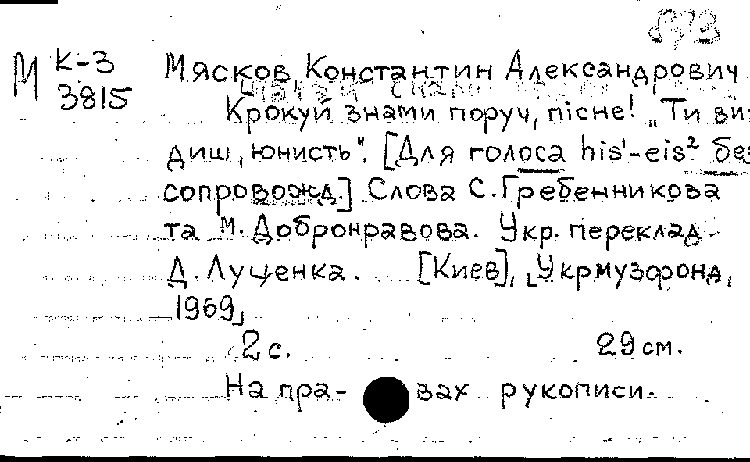 М К-3 Мясков, Константин Александрович
3815
Крокуй з нами поруч, пісне! „Ти ви-
диш, юнисть". [Для голоса his¹-eis² без
сопровожд.] Слова С. Гребенникова
та М. Добронравова. Укр. переклад
Д. Луценка. [Киев], [Укрмузфонд,
1969]
2 с. 29 см.
На пра- вах рукописи.